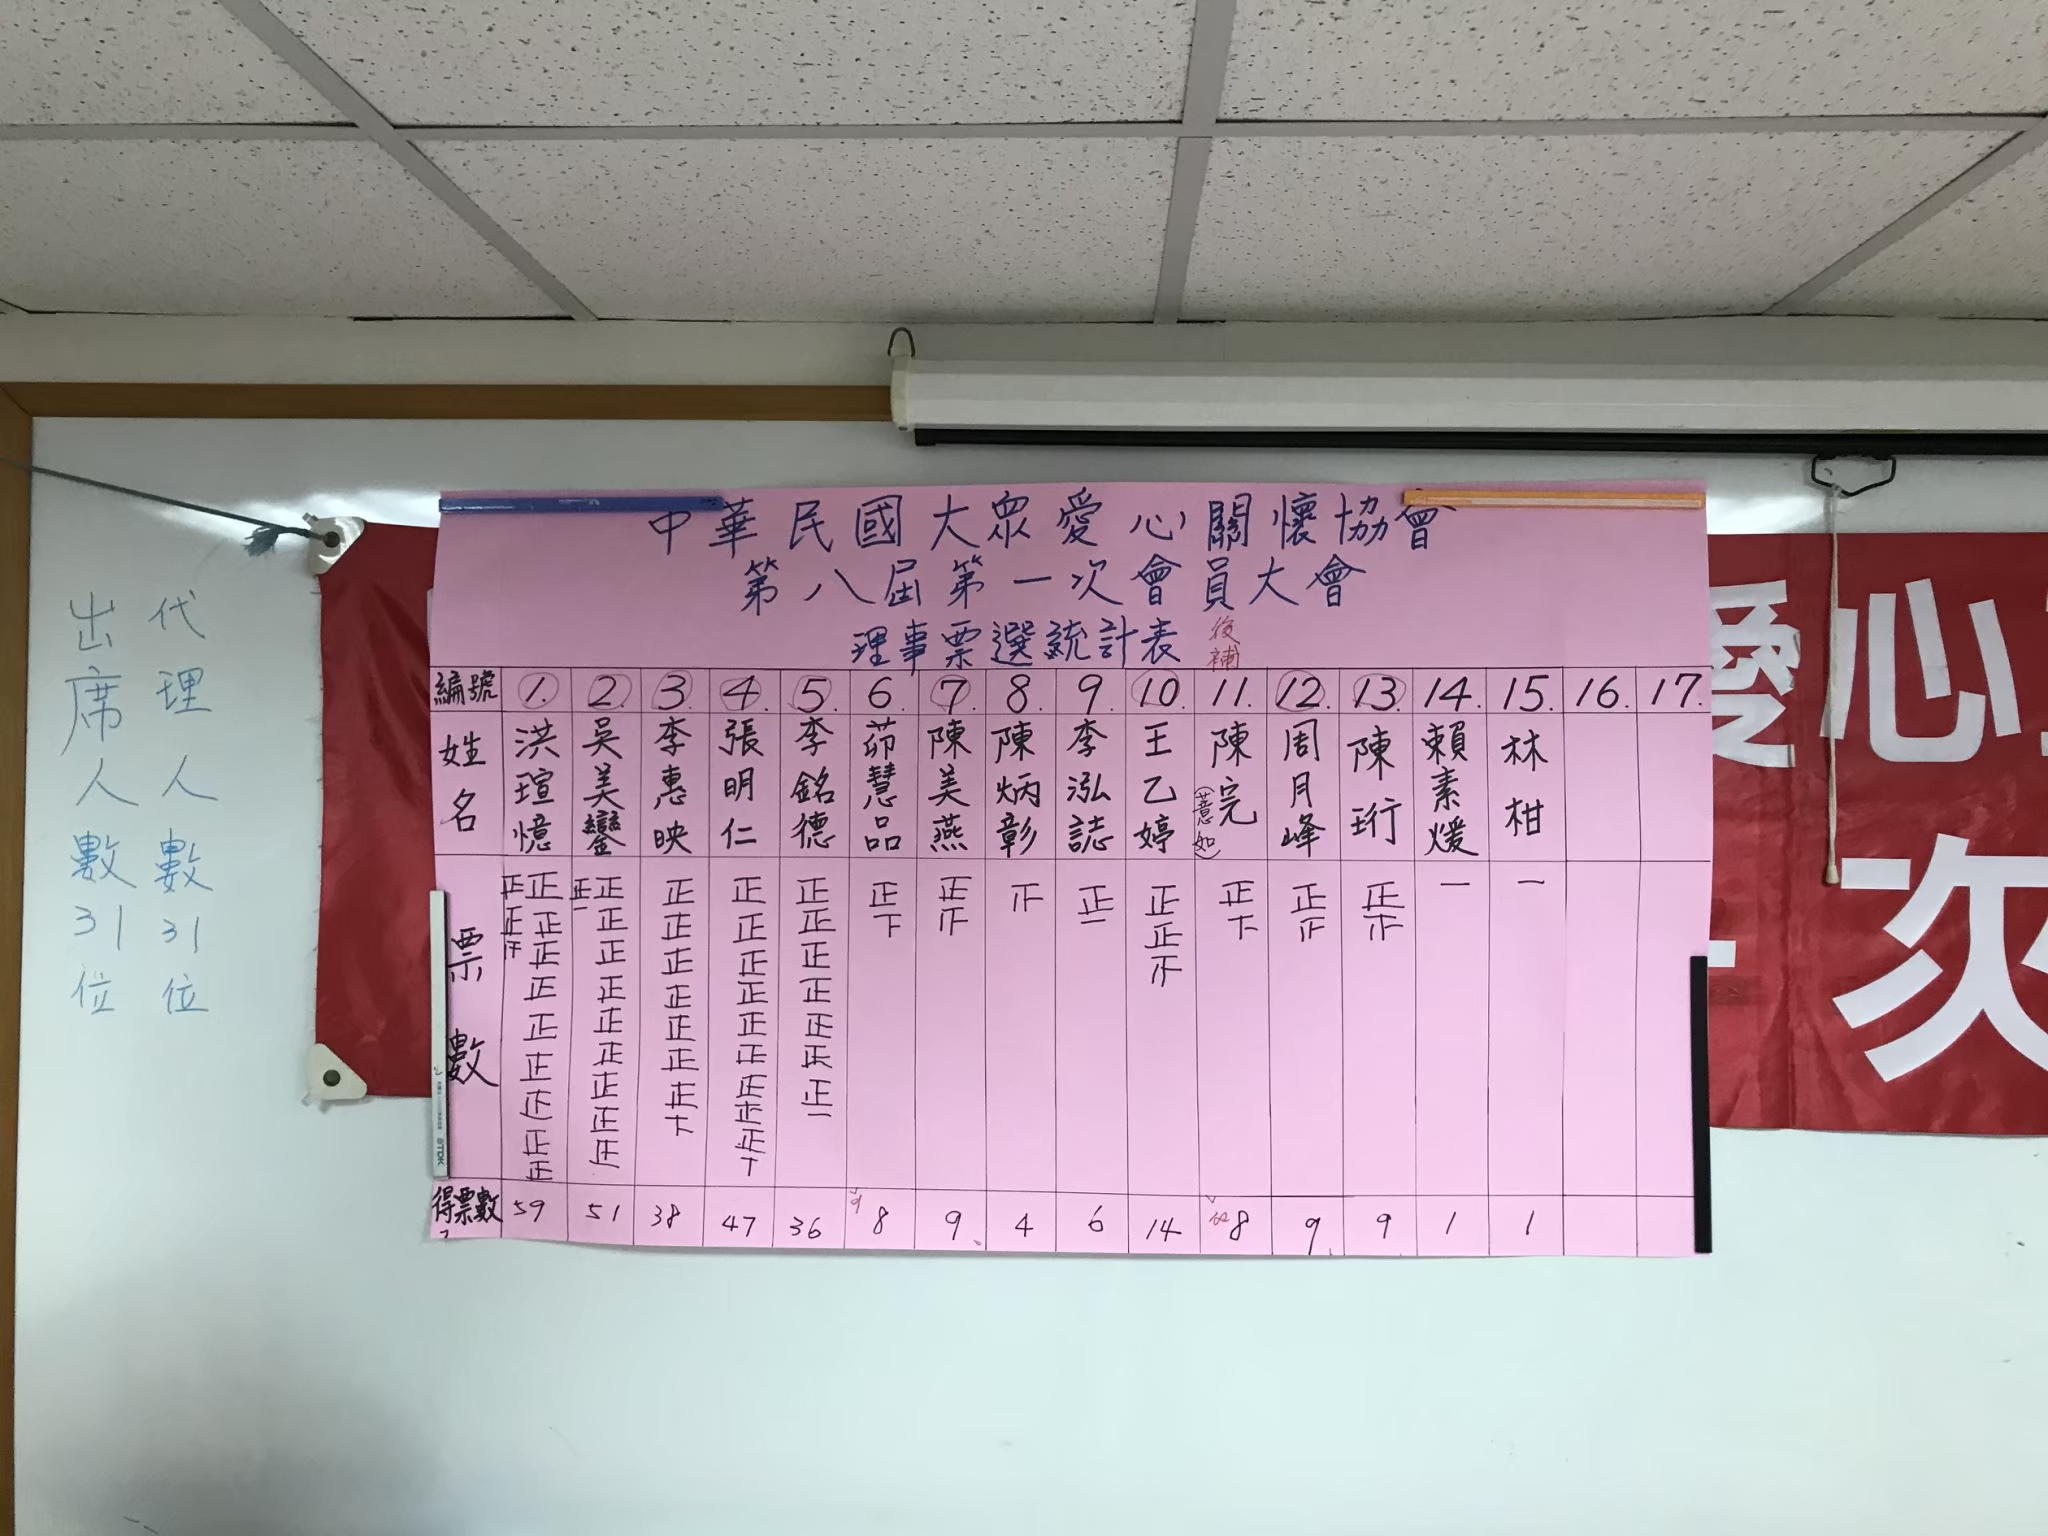 中華民國大眾愛心關懷協會
第八屆第一次會員大會
理事票選統計表
後補
編號 1. 2. 3. 4. 5. 6. 7. 8. 9. 10. 11. 12. 13. 14. 15. 16. 17.
姓名 洪瑄憶 吳美鑾 李惠映 張明仁 李銘德 茆慧品 陳美燕 陳炳彰 李泓誌 王乙婷 陳完(薏如) 周月峰 陳珩 賴素煖 林柑
票數 正正正正正正正正正正正 正正正正正正正正正 正正正正正正正 正正正正正正正正正 正正正正正正正一 正下 正 正一 正正 正下 正 正 一 一
得票數 59 51 38 47 36 8 9 4 6 14 8 9 9 1 1
代理人數31位
出席人數31位
愛心
次